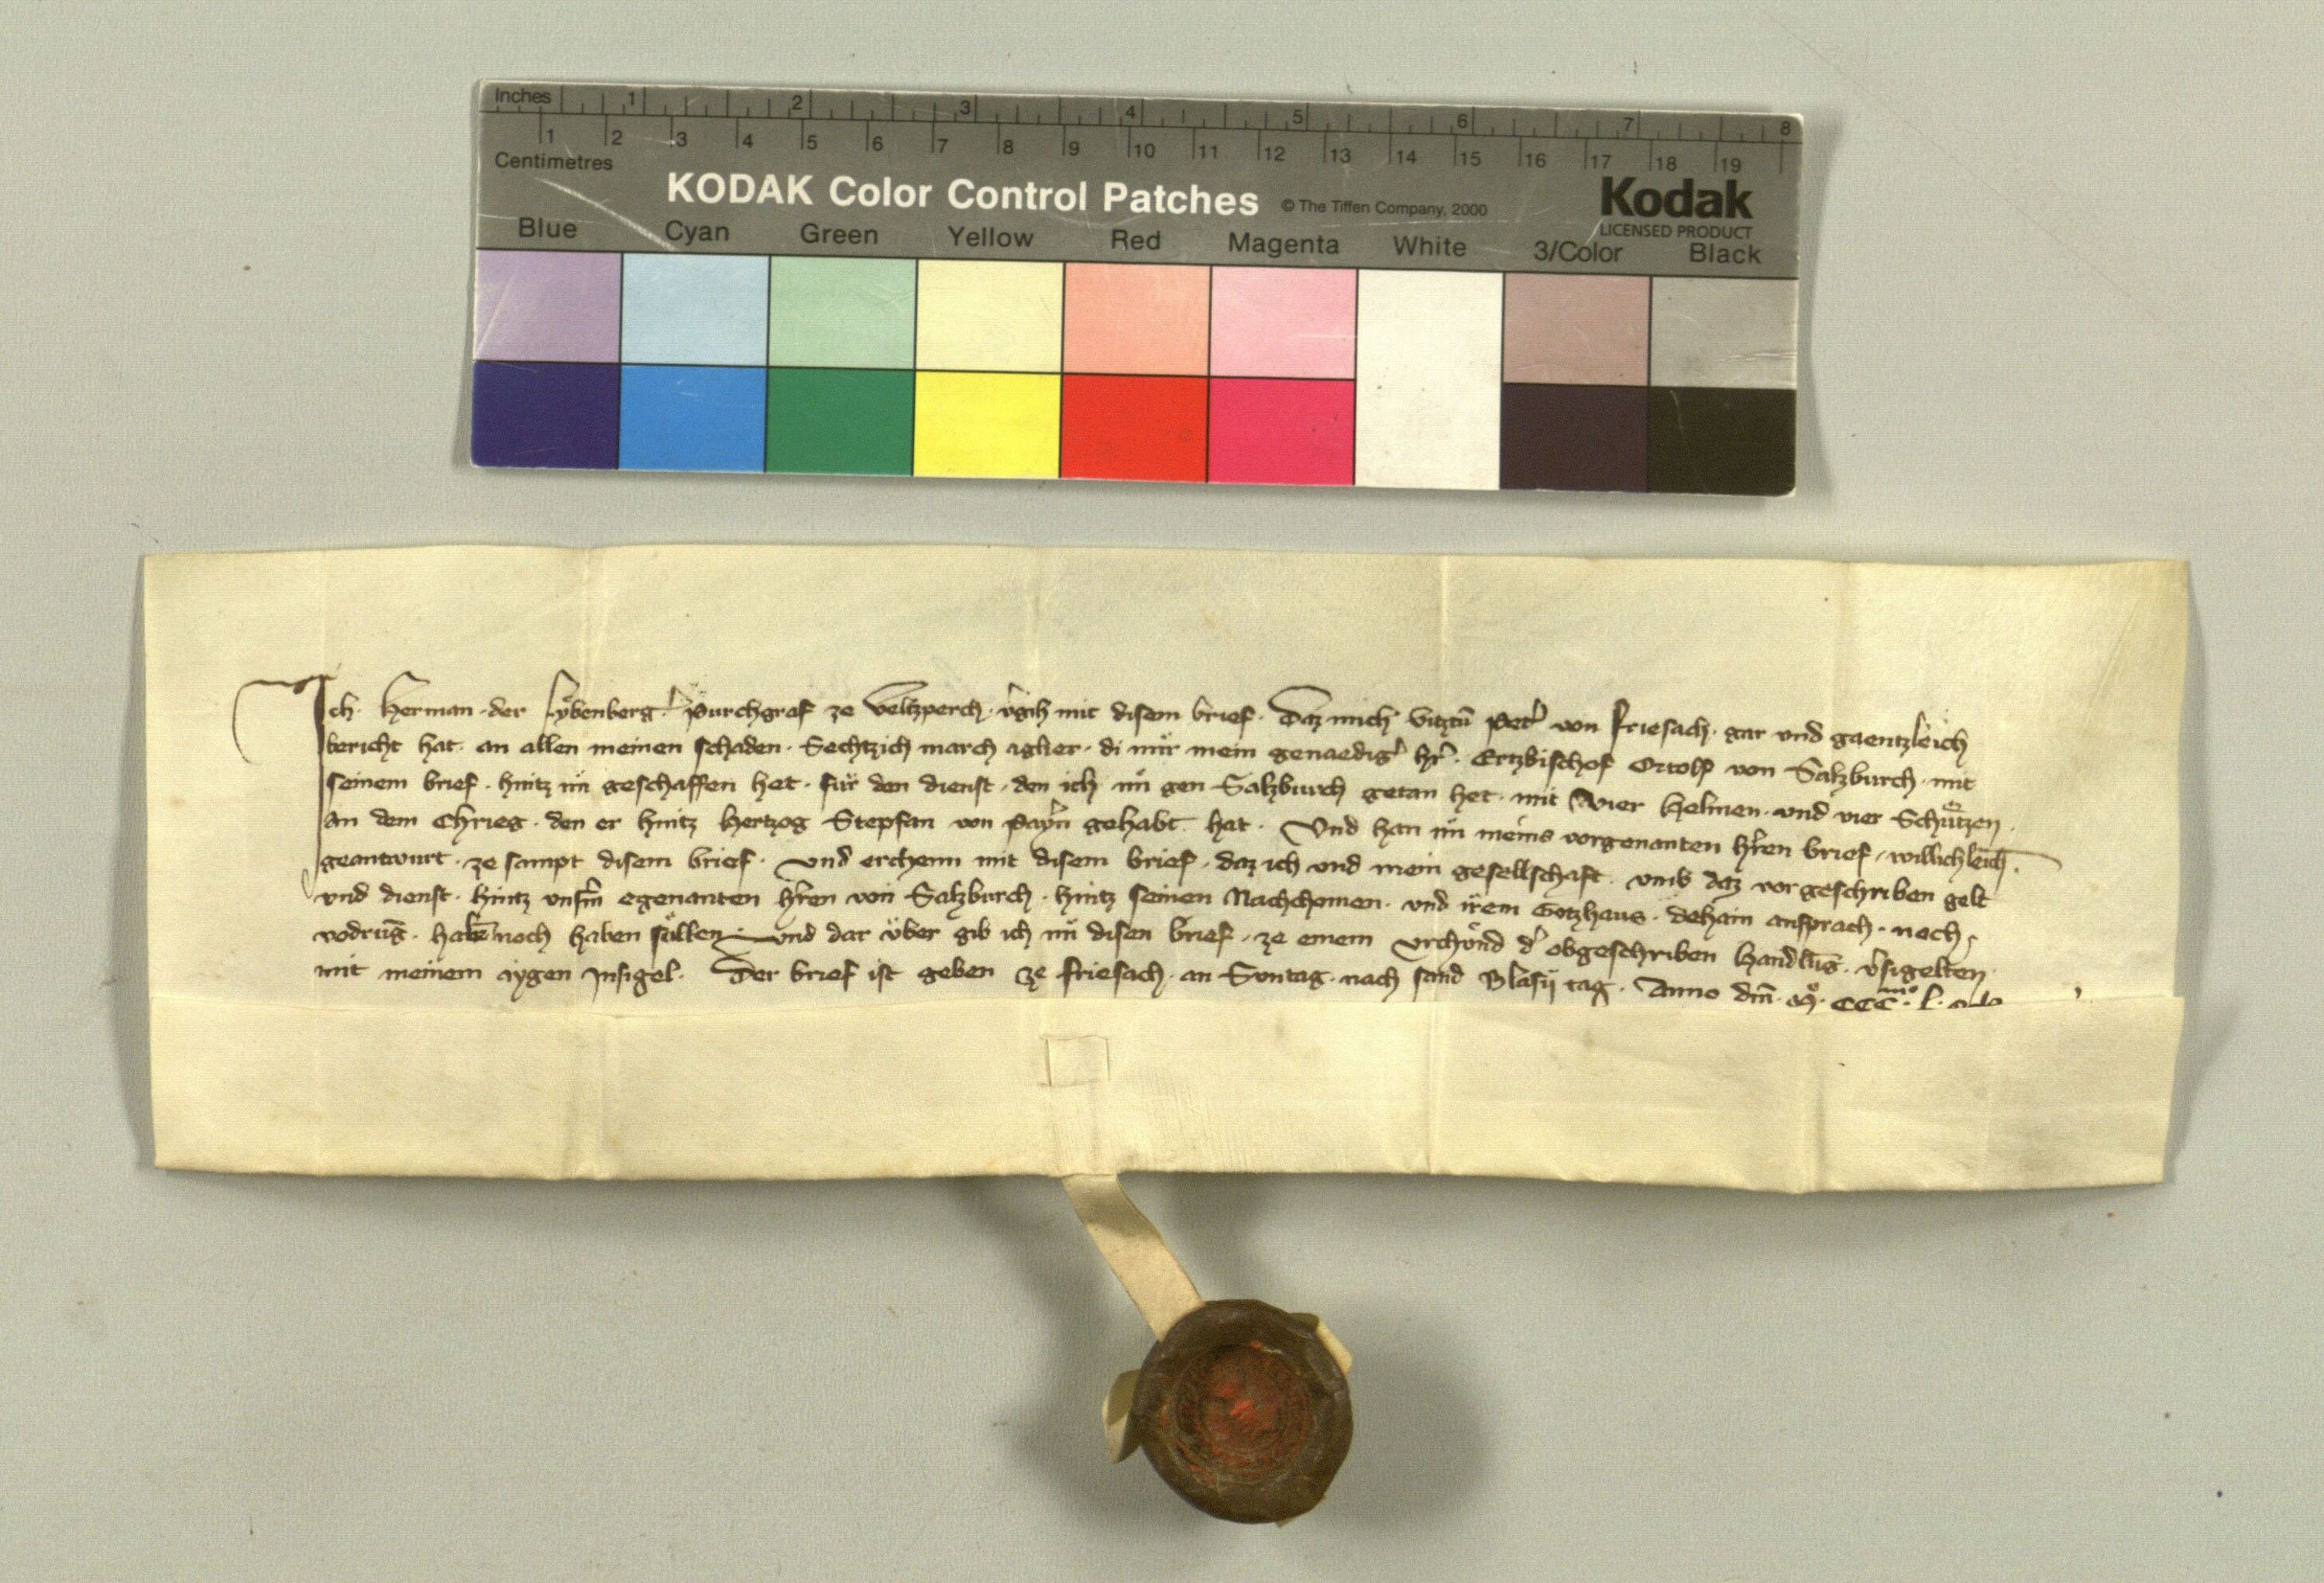 Inches 1 2 3 4 5 6 7 8
1 2 3 4 5 6 7 8 9 10 11 12 13 14 15 16 17 18 19
Centimetres
KODAK Color Control Patches © The Tiffen Company, 2000 Kodak
LICENSED PRODUCT
Blue Cyan Green Yellow Red Magenta White 3/Color Black
Ich Herman der purchgraf ze Veltzperch v̄gih mit disem brief. Daz mich vitztū Pet͛ von Friesach. gar vnd gaentzleich
bericht hat. an allen meinen schaden. Sechtzich march agl̄ier. di mir mein genaedig͛ h͛r. Ertzbischof Ortolf von Salzburch. mit
seinem brief. hintz im geschaffen het. fuͤr den dienst. den ich im gen Salzburch getan het. mit vier Helmen. vnd vier Schuͤtzen.
an dem Chrieg. den er hintz Hertzog Stepfan von Payr̄n gehabt hat. Vnd han im meins vorgenanten h͛ren brief. willichleich.
geantwurt. ze sampt disem brief. vnd erchenn mit disem brief. daz ich vnd mein geselschaft. vmb daz vorgeschriben gelt
vnd dienst. hintz vnsm̄ egenanten h͛ren von Salzburch. hintz seinen Nachchomen. vnd irem Gotzhaus. dehain ansprach. noch
vodrūg. habē noch haben suͤllen. vnd dar vͤber gib ich im disen brief. ze einem vrchoͤnd d͛ obgeschriben handlūg. v͛sigelten
mit meinem aygen Insigel. Der brief ist geben ze Friesach. an Svntag. nach sand Blasij tag. Anno dn̄i. Mͦ. CCCͫͦ. l.